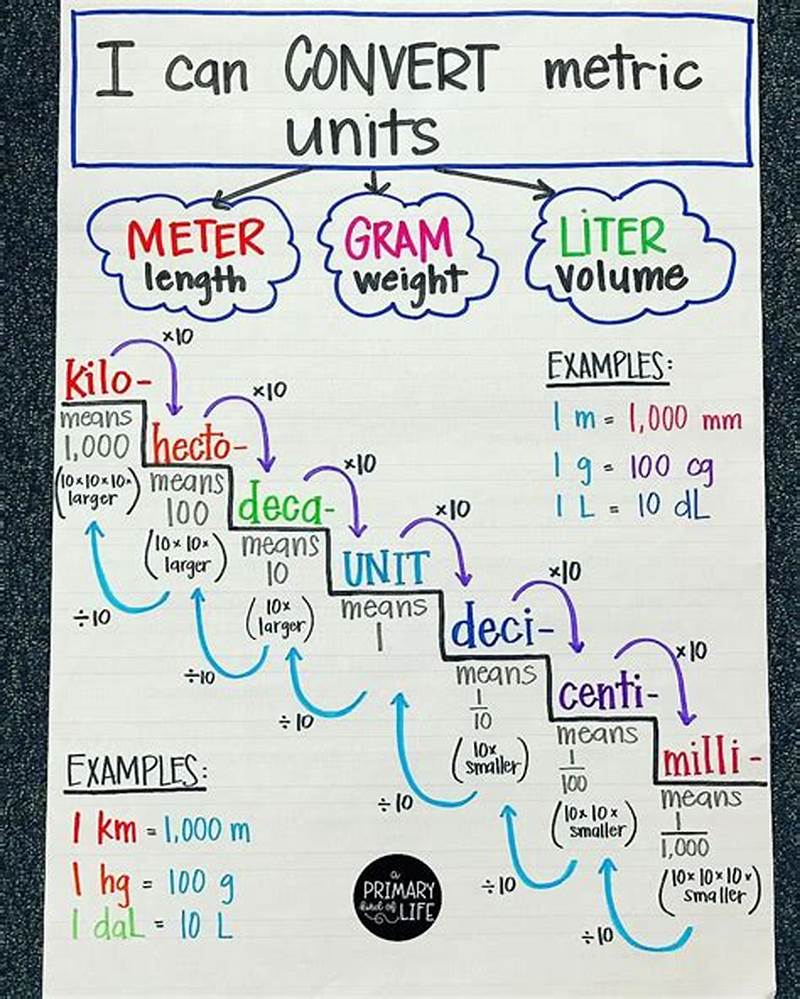 I can CONVERT metric
units
METER
length
GRAM
weight
LITER
volume
kilo-
means
1,000
(10x10x10x
larger)
x10
hecto-
means
100
(10x 10x
larger)
x10
deca-
means
10
(10x
larger)
x10
UNIT
means
1
x10
deci-
means
1/10
(10x
smaller)
x10
centi-
means
1/100
(10x 10x
smaller)
x10
milli-
means
1/1,000
(10x 10x 10x
smaller)
÷10
÷10
÷10
÷10
÷10
÷10
EXAMPLES:
1 m = 1,000 mm
1 g = 100 cg
1 L = 10 dL
EXAMPLES:
1 km = 1,000 m
1 hg = 100 g
1 daL = 10 L
a
PRIMARY
kind of
LIFE